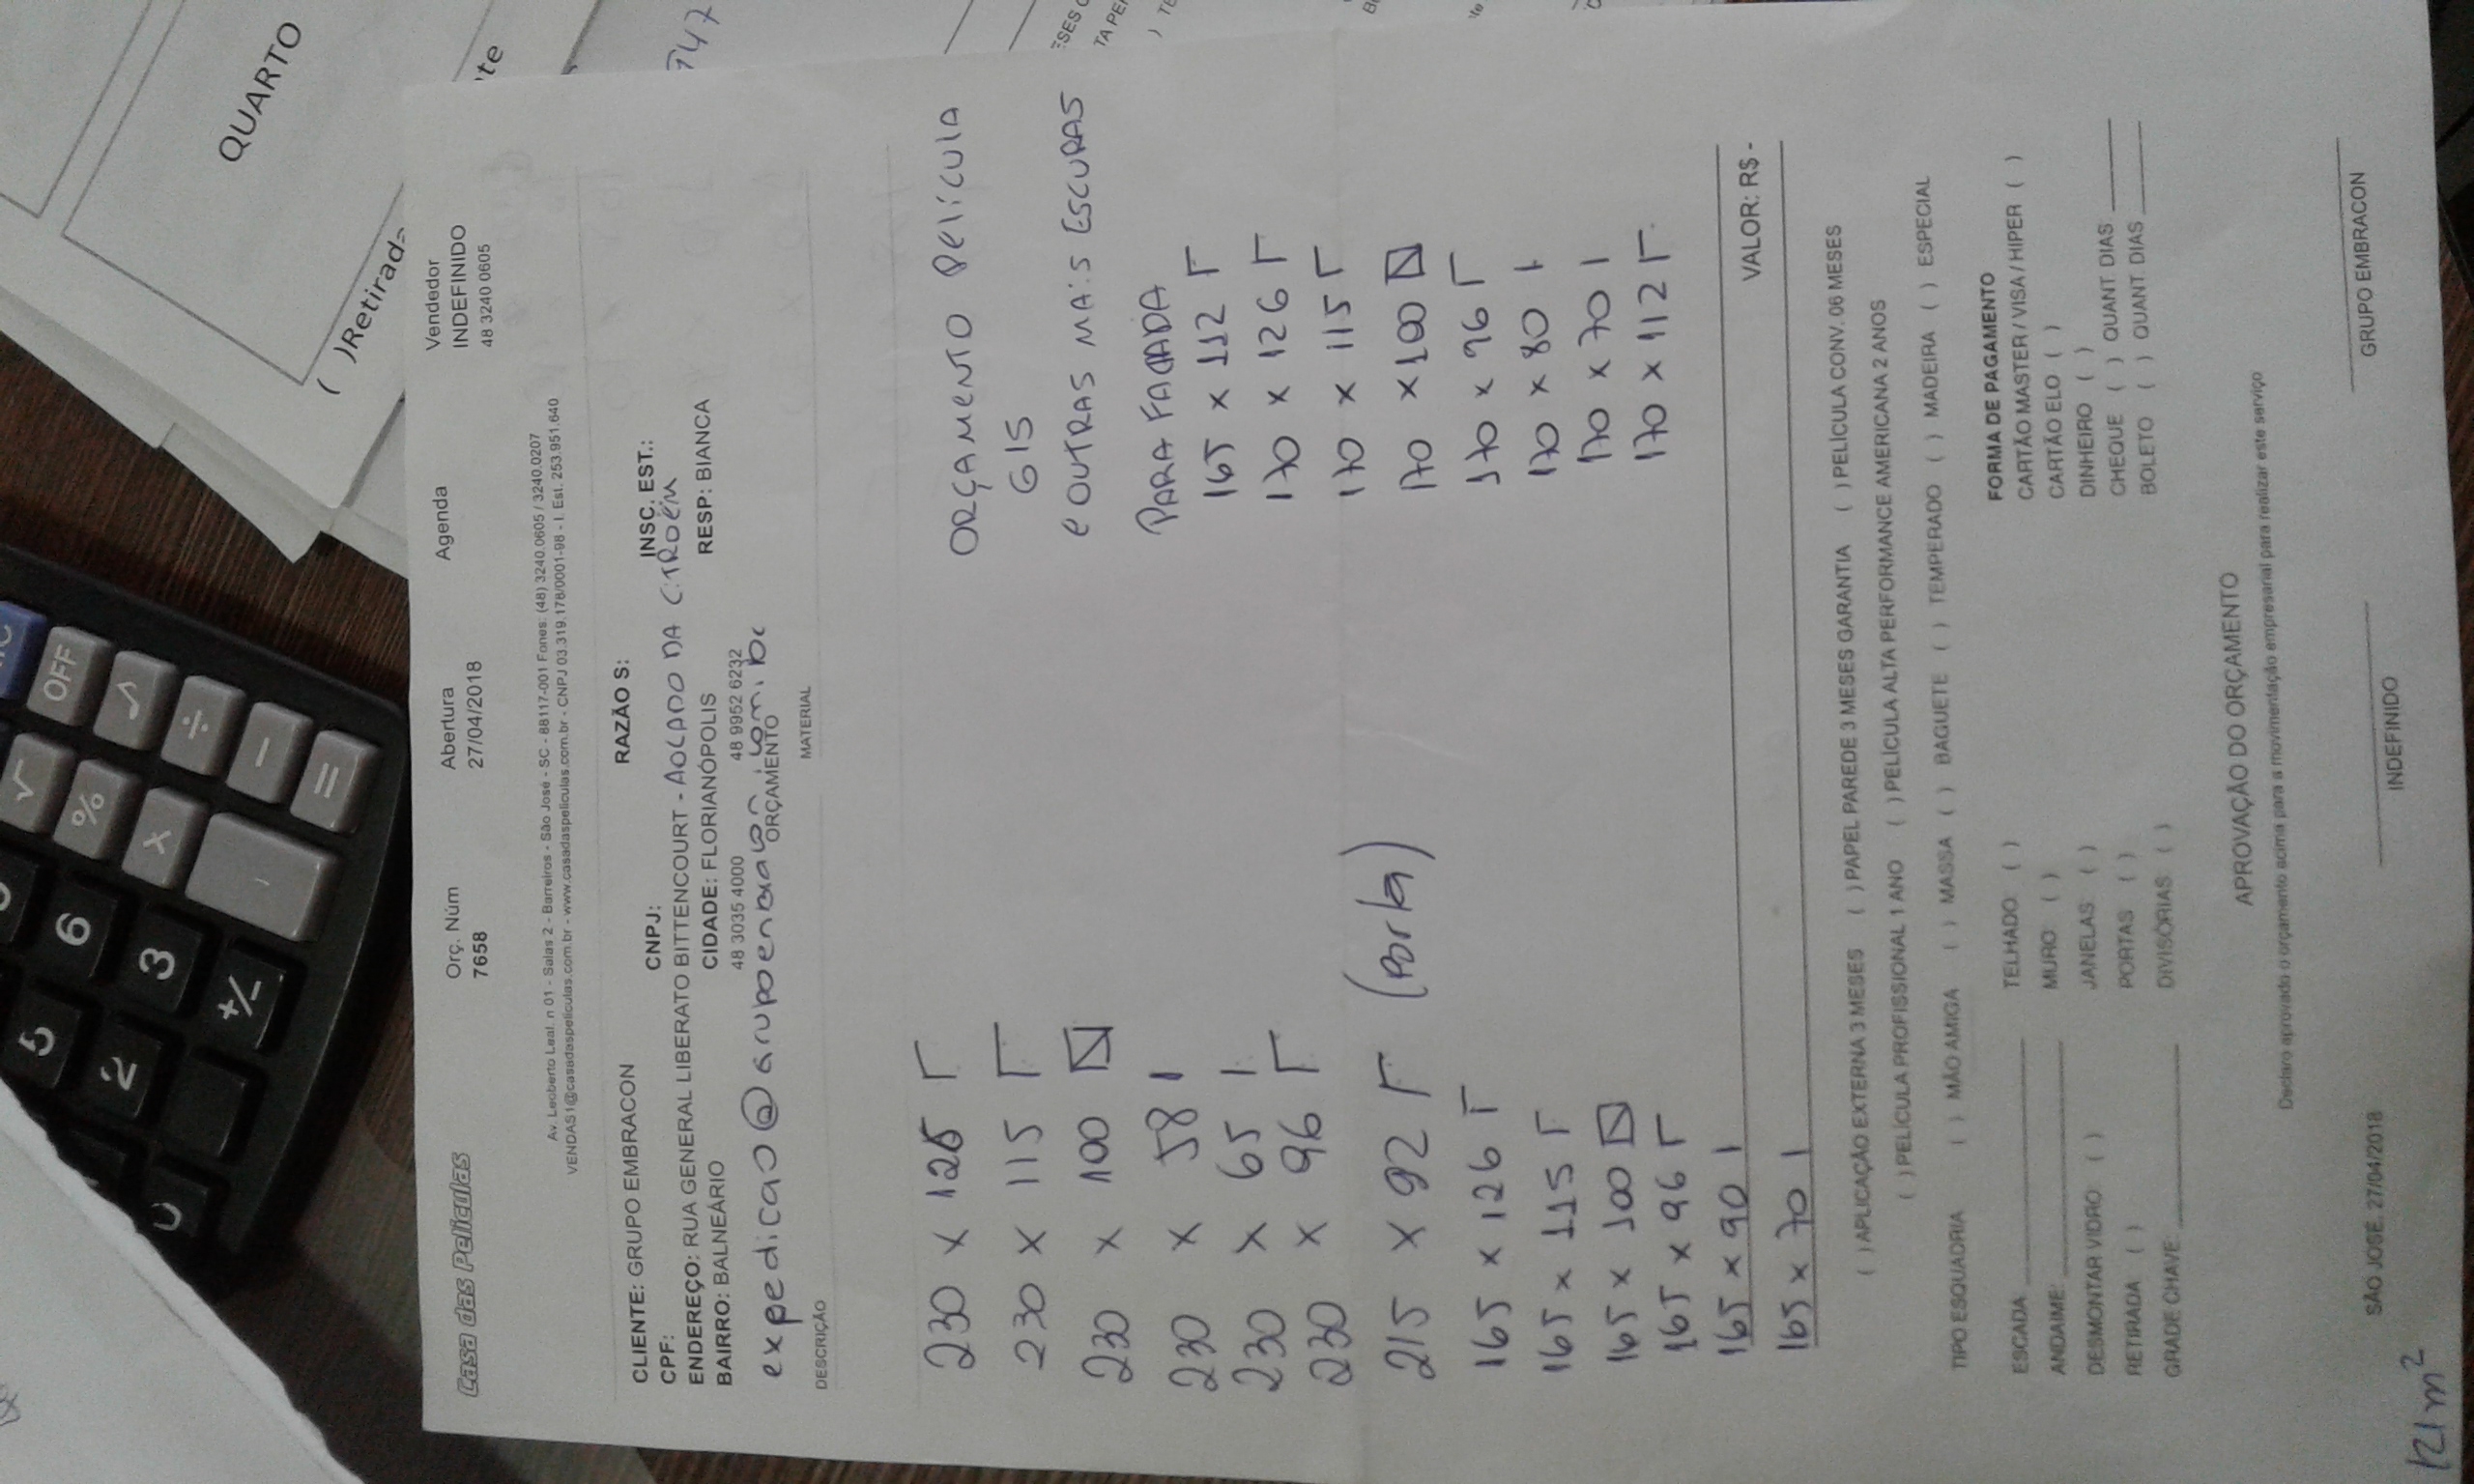 QUARTO
( )Retirad
te
547
Casa das Películas
Orç. Núm
7658
Abertura
27/04/2018
Agenda
Vendedor
INDEFINIDO
48 3240 0605
Av. Leoberto Leal. n 01 - Salas 2 - Barreiros - São José - SC - 88117-001 Fones: (48) 3240.0605 / 3240.0207
VENDAS1@casadaspeliculas.com.br - www.casadaspeliculas.com.br - CNPJ 03.319.178/0001-98 - I. Est. 253.951.640
CLIENTE: GRUPO EMBRACON RAZÃO S:
CPF: CNPJ: INSC. EST.:
ENDEREÇO: RUA GENERAL LIBERATO BITTENCOURT - AO LADO DA CITROËN
BAIRRO: BALNEÁRIO CIDADE: FLORIANÓPOLIS RESP: BIANCA
48 3035 4000 48 9952 6232
ORÇAMENTO
DESCRIÇÃO MATERIAL
ORÇAMENTO PELÍCULA
G15
e OUTRAS MAIS ESCURAS
PARA FACHADA
230 x 126 Γ
230 x 115 Γ
230 x 100
230 x 58 I
230 x 65 I
230 x 96 Γ
215 x 92 Γ (Porta)
165 x 126 Γ
165 x 115 Γ
165 x 100
165 x 96 Γ
165 x 90 I
165 x 70 I
165 x 112 Γ
170 x 126 Γ
170 x 115 Γ
170 x 100
170 x 96 Γ
170 x 80 I
170 x 70 I
170 x 112 Γ
VALOR: R$ -
( ) APLICAÇÃO EXTERNA 3 MESES ( ) PAPEL PAREDE 3 MESES GARANTIA ( ) PELÍCULA CONV. 06 MESES
( ) PELÍCULA PROFISSIONAL 1 ANO ( ) PELÍCULA ALTA PERFORMANCE AMERICANA 2 ANOS
TIPO ESQUADRIA ( ) MÃO AMIGA ( ) MASSA ( ) BAGUETE ( ) TEMPERADO ( ) MADEIRA ( ) ESPECIAL
ESCADA TELHADO ( )
ANDAIME: MURO ( )
DESMONTAR VIDRO ( ) JANELAS ( )
RETIRADA ( ) PORTAS ( )
GRADE CHAVE: DIVISÓRIAS ( )
FORMA DE PAGAMENTO
CARTÃO MASTER / VISA / HIPER ( )
CARTÃO ELO ( )
DINHEIRO ( )
CHEQUE ( ) QUANT. DIAS
BOLETO ( ) QUANT. DIAS
APROVAÇÃO DO ORÇAMENTO
Declaro aprovado o orçamento acima para a movimentação empresarial para realizar este serviço
SÃO JOSÉ, 27/04/2018
INDEFINIDO
GRUPO EMBRACON
121m²
OFF
√
%
÷
x
-
=
6
5
3
2
+/-